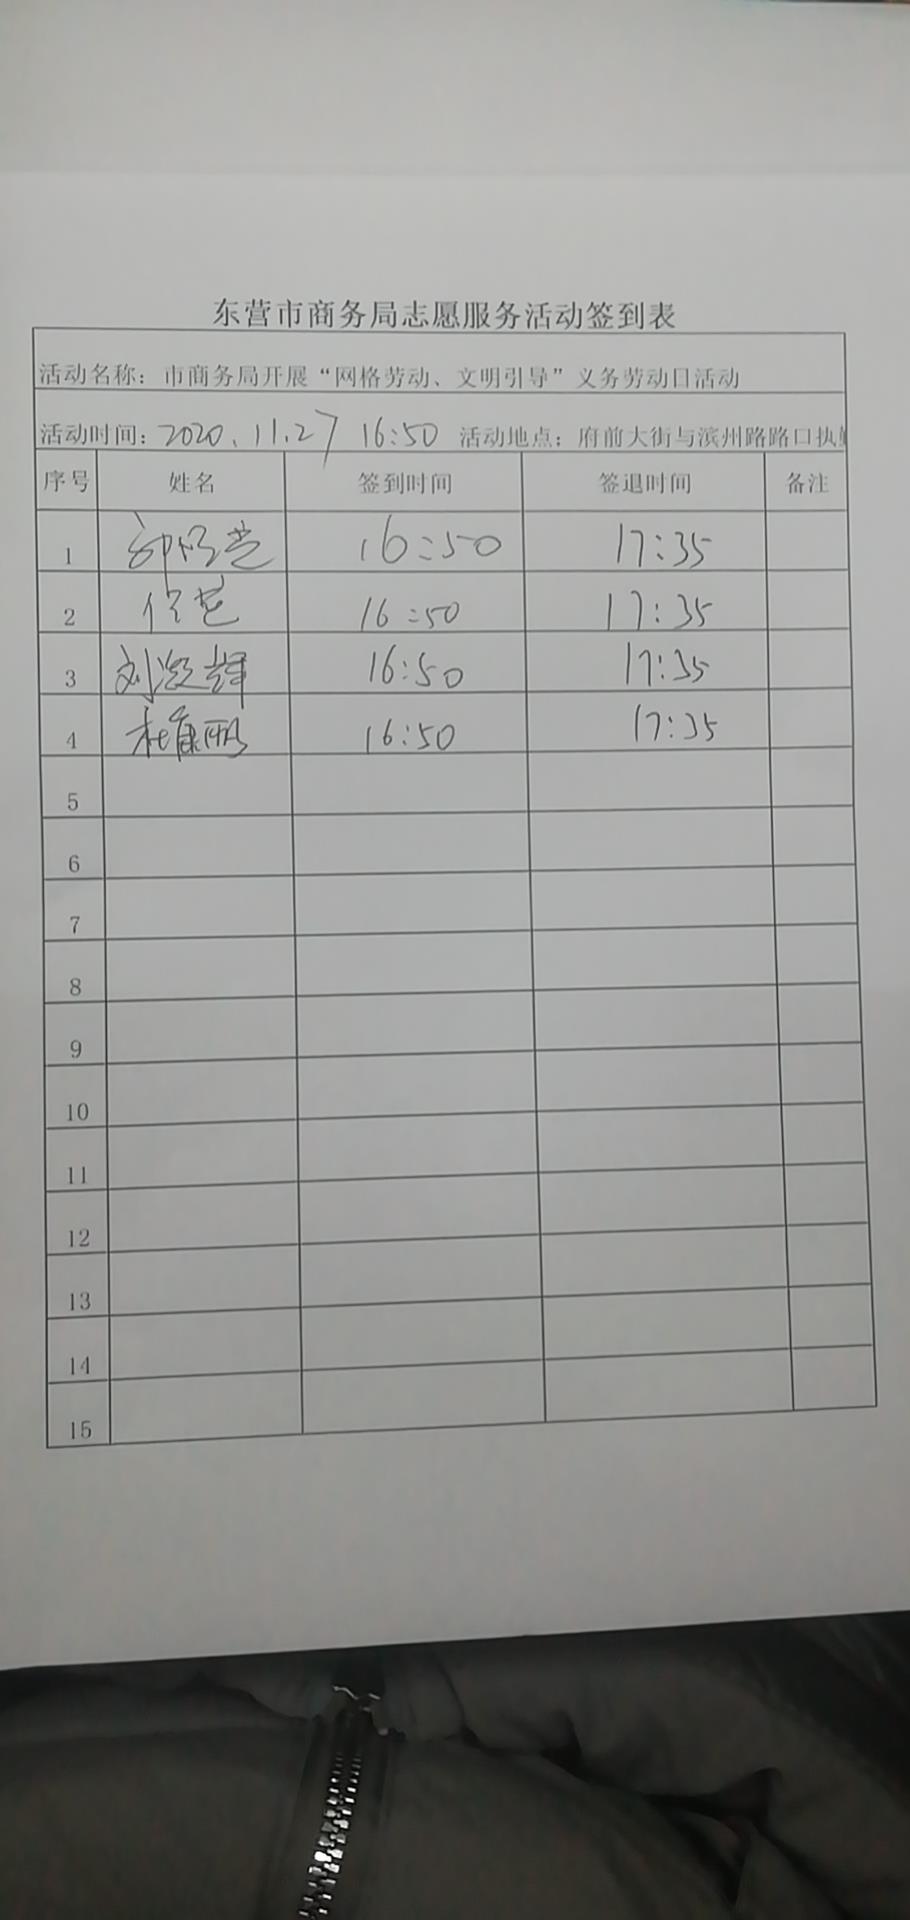 东营市商务局志愿服务活动签到表
活动名称：市商务局开展“网格劳动、文明引导”义务劳动日活动
活动时间：2020.11.27 16:50 活动地点：府前大街与滨州路路口执
序号 姓名 签到时间 签退时间 备注
1 16:50 17:35
2 16:50 17:35
3 刘 16:50 17:35
4 杜 16:50 17:35
5
6
7
8
9
10
11
12
13
14
15